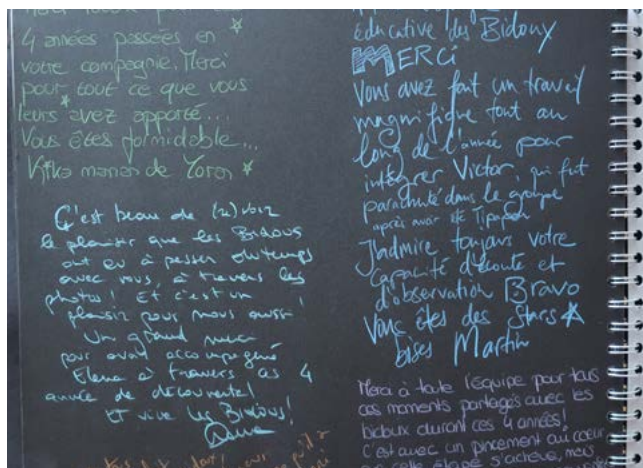 4 années passées en
votre compagnie. Merci
pour tout ce que vous
leurs avez apporté...
Vous êtes formidable...
maman de
C'est beau de (re)voir
le plaisir que les Bidous
ont eu à passer du temps
avec vous à travers les
photos! Et c'est un
plaisir pour nous aussi!
Un grand merci
pour avoir accompagné
Elena à travers ces 4
année de découverte!
Et vive les Bidous!
éducative des Bidoux
MERCi
Vous avez fait un travail
magnifique tout au
long de l'année pour
intégrer Victor, qui fut
parachuté dans le groupe
après avoir été
J'admire toujours votre
capacité d'écoute et
d'observation Bravo
Vous êtes des Stars
bises Martin
Merci à toute l'équipe pour tous
ces moments partagés avec les
bidoux durant ces 4 années!
C'est avec un pincement au coeur
cette étape s'achève, mais